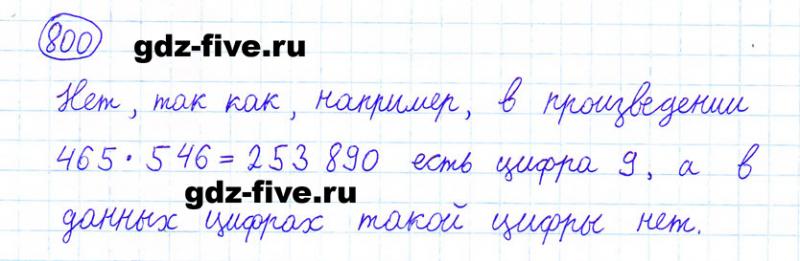 800
gdz-five.ru
Нет, так как, например, в произведении
465 · 546 = 253 890 есть цифра 9, а в
gdz-five.ru
данных цифрах такой цифры нет.